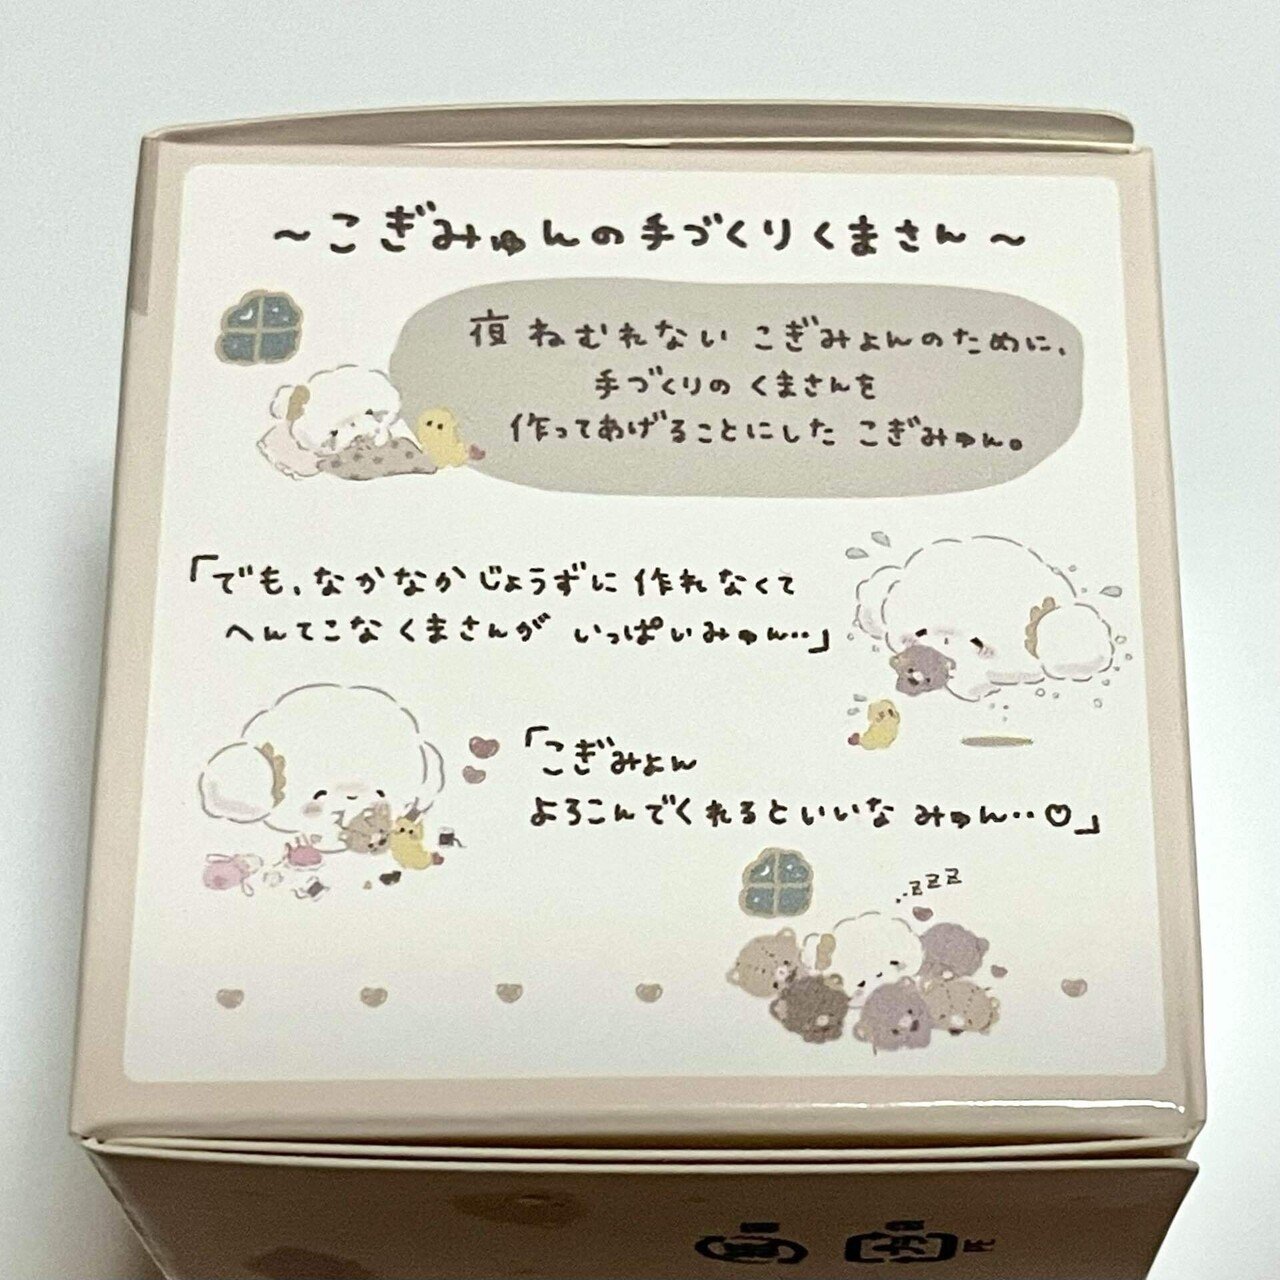 ～こぎみゅんの手づくりくまさん～
夜 ねむれない こぎみょんのために、
手づくりの くまさんを
作ってあげることにした こぎみゅん。
「でも、なかなかじょうずに 作れなくて
へんてこな くまさんが いっぱいみゅん‥」
「こぎみょん
よろこんでくれるといいな みゅん‥♡」
‥zzz